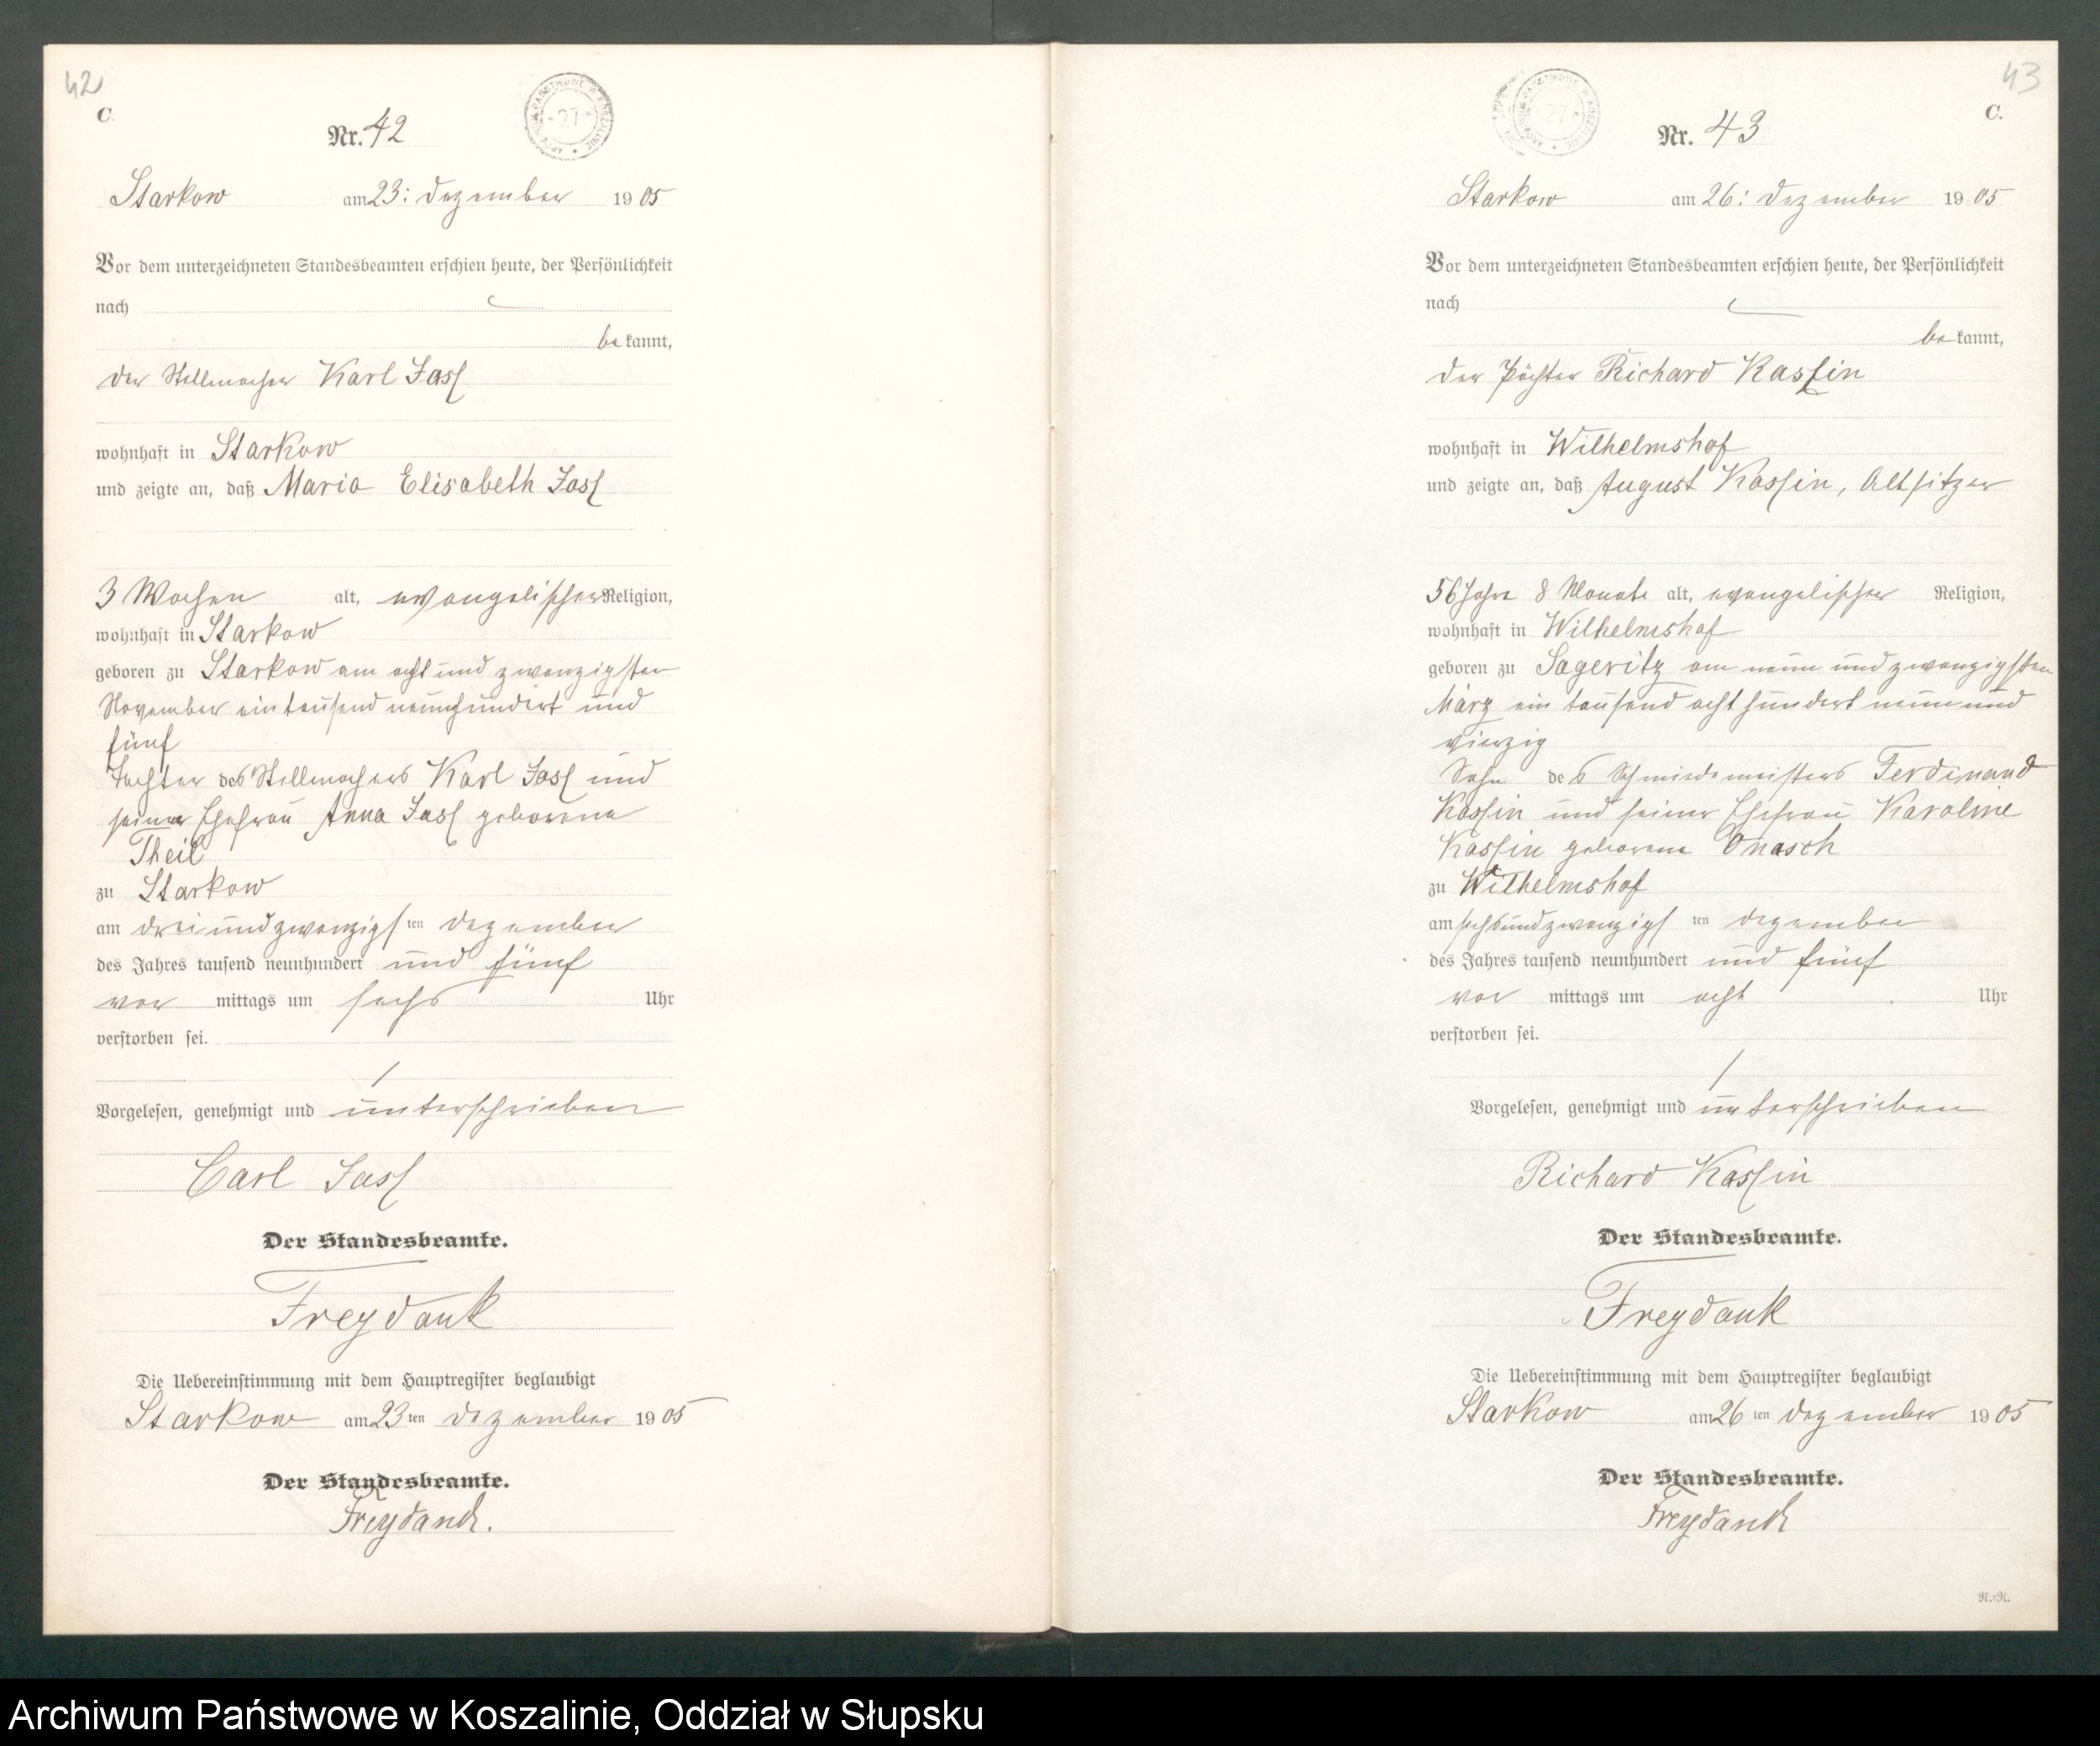 42
C.
Nr. 42
ARCHIWUM PAŃSTWOWE W KOSZALINIE
* 27 *
Starkow am 23: Dezember 1905
Vor dem unterzeichneten Standesbeamten erschien heute, der Persönlichkeit
nach
bekannt,
der Stellmacher Karl Jass
wohnhaft in Starkow
und zeigte an, daß Maria Elisabeth Jass
3 Wochen alt, evangelischer Religion,
wohnhaft in Starkow
geboren zu Starkow am acht und zwanzigsten
November ein tausend neunhundert und
fünf
Tochter des Stellmachers Karl Jass und
seiner Ehefrau Anna Jass geborene
Theil
zu Starkow
am drei und zwanzigsten Dezember
des Jahres tausend neunhundert und fünf
vor mittags um sechs Uhr
verstorben sei.
Vorgelesen, genehmigt und unterschrieben
Carl Jass
Der Standesbeamte.
Freydank
Die Uebereinstimmung mit dem Hauptregister beglaubigt
Starkow am 23ten Dezember 1905
Der Standesbeamte.
Freydank.
43
C.
Nr. 43
ARCHIWUM PAŃSTWOWE W KOSZALINIE
* 27 *
Starkow am 26: Dezember 1905
Vor dem unterzeichneten Standesbeamten erschien heute, der Persönlichkeit
nach
bekannt,
der Pächter Richard Kassin
wohnhaft in Wilhelmshof
und zeigte an, daß August Kassin, Altsitzer
56 Jahre 8 Monate alt, evangelischer Religion,
wohnhaft in Wilhelmshof
geboren zu Sageritz am neun und zwanzigsten
März ein tausend acht hundert neun und
vierzig
Sohn des Schmiedemeisters Ferdinand
Kassin und seiner Ehefrau Karoline
Kassin geborene Onasch
zu Wilhelmshof
am sechs und zwanzigsten Dezember
des Jahres tausend neunhundert und fünf
vor mittags um acht Uhr
verstorben sei.
Vorgelesen, genehmigt und unterschrieben
Richard Kassin
Der Standesbeamte.
Freydank
Die Uebereinstimmung mit dem Hauptregister beglaubigt
Starkow am 26ten Dezember 1905
Der Standesbeamte.
Freydank
R.-R.
Archiwum Państwowe w Koszalinie, Oddział w Słupsku